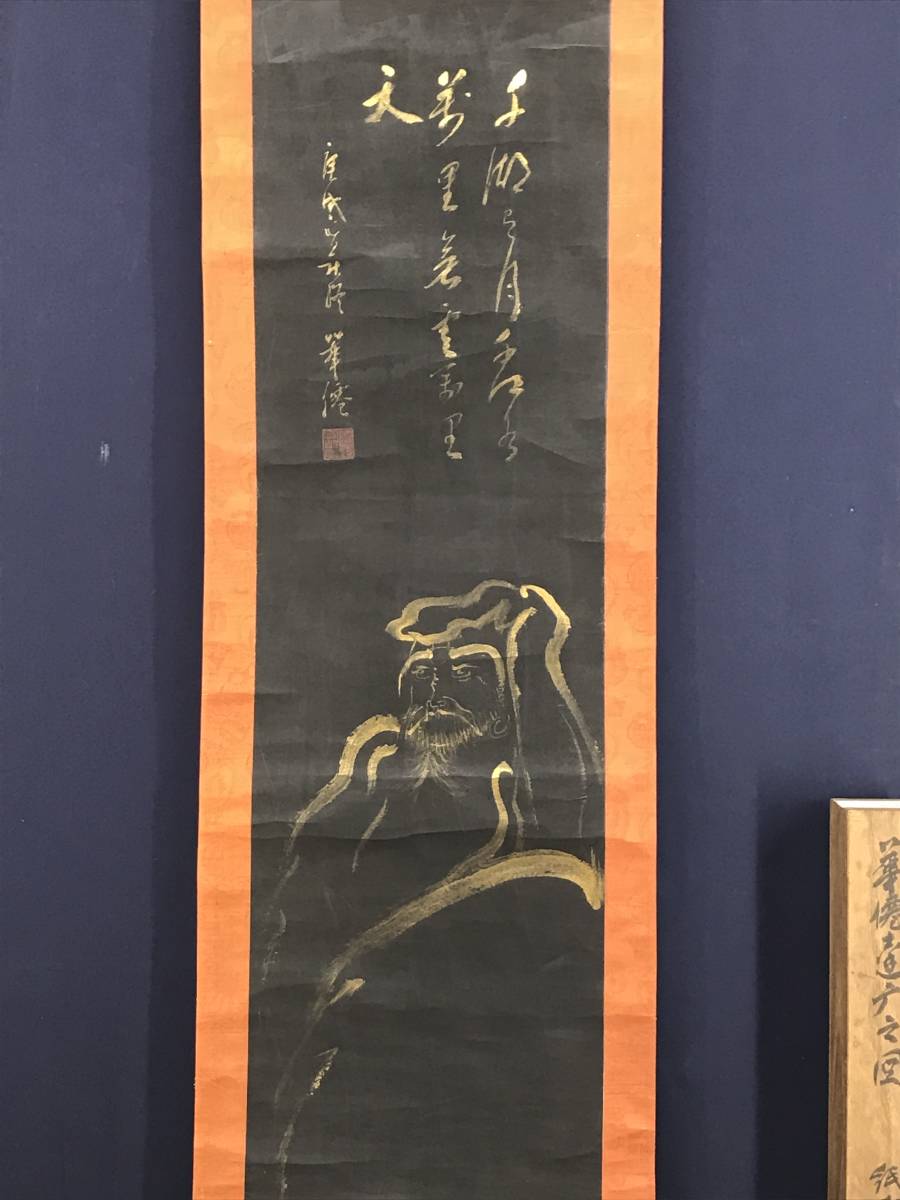 千湖月千江水
萬里無雲萬里
天
庚戌 華僊
華僊達广之図 紙